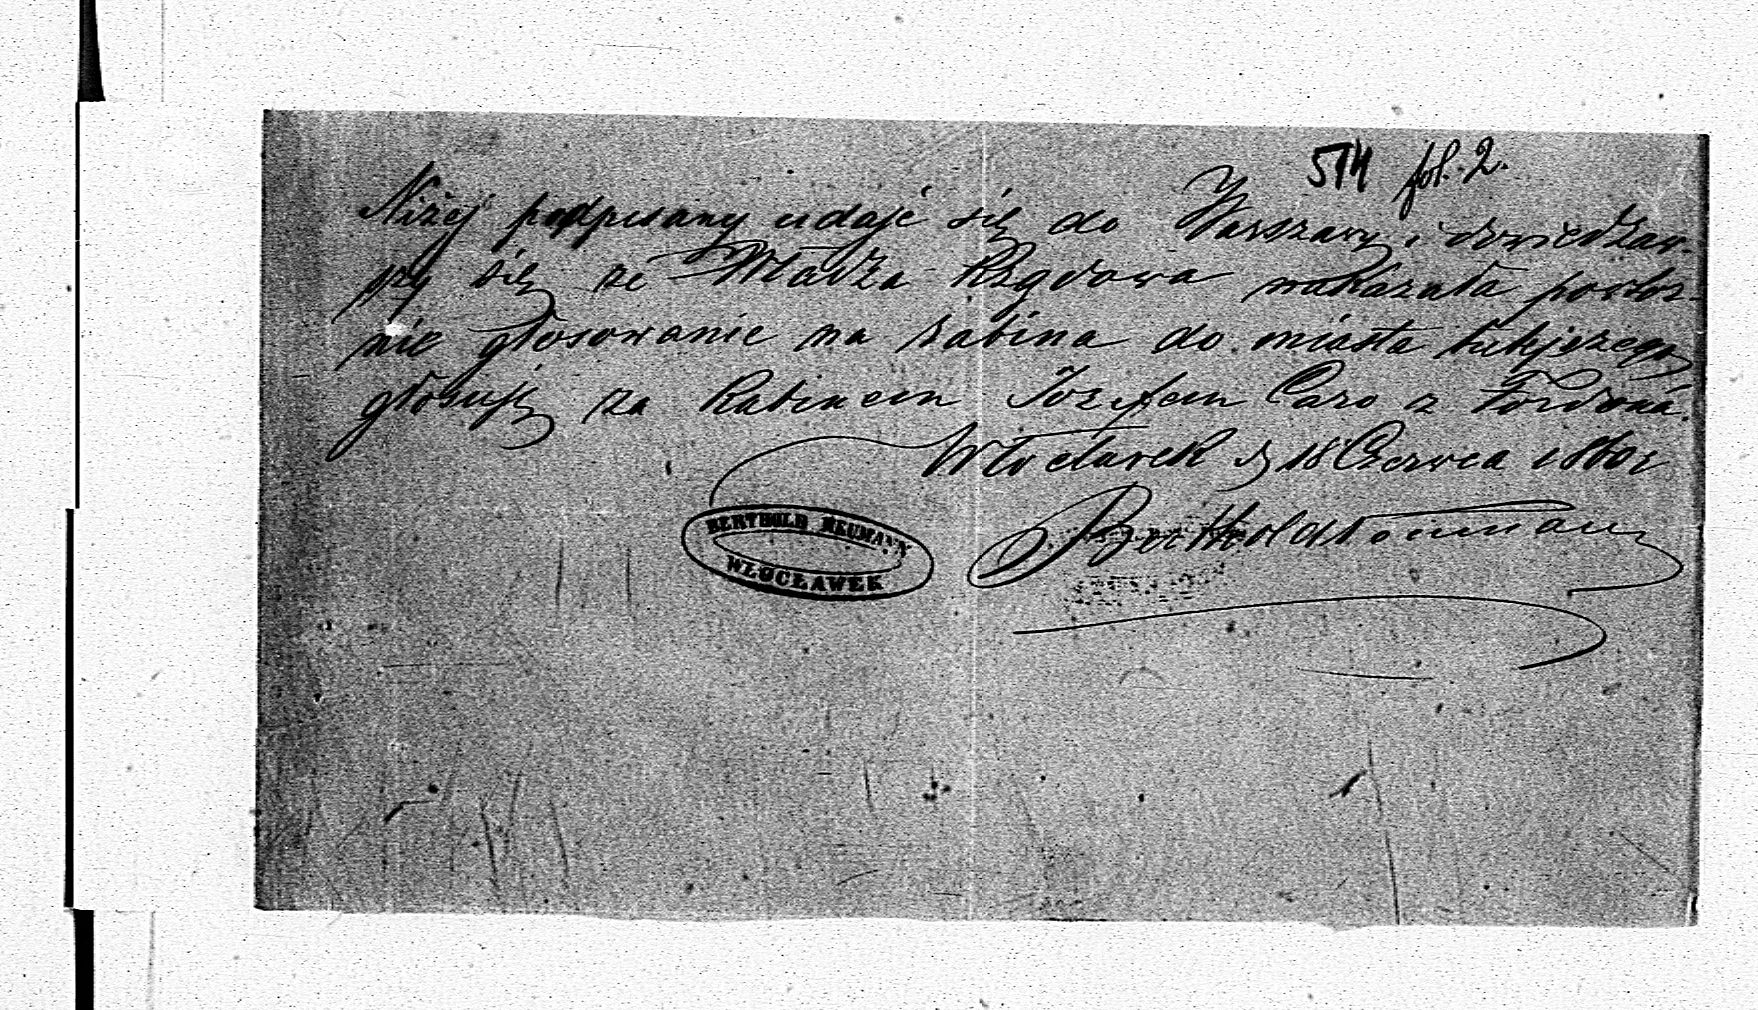 514 fol. 2.
Niżej podpisany udaje się do Warszawy i dowiedzaw-
szy się że Władza Rządowa nakazała powtór-
nie głosowanie na rabina do miasta tutejszego
głosuję za Rabinem Józefem Caro z Fordona.
Włocławek d 18 Czerwca 1860r
Berthold Neumann
BERTHOLD NEUMANN
WŁOCŁAWEK